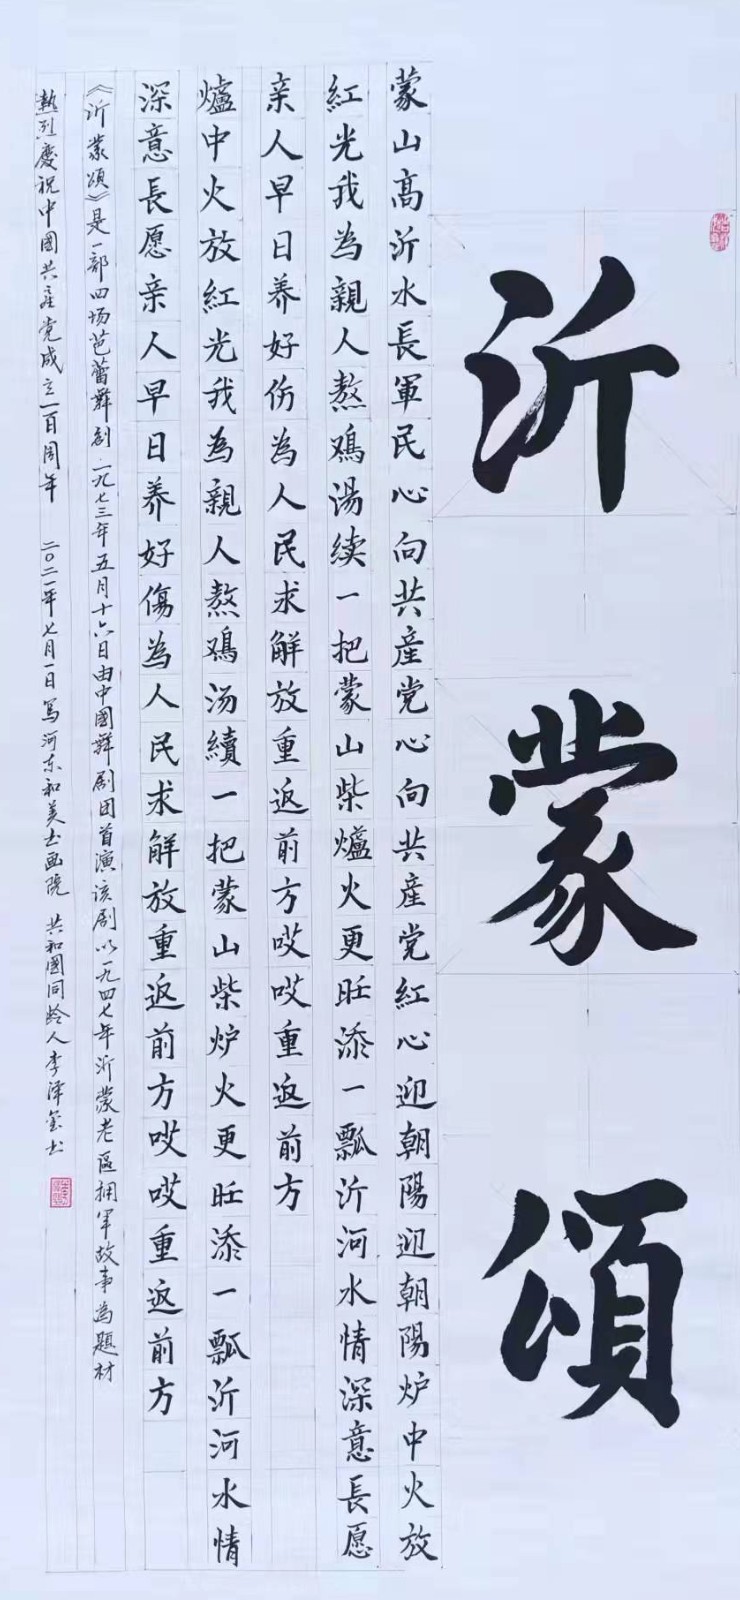 沂蒙頌
蒙山高沂水長軍民心向共産党心向共産党紅心迎朝陽迎朝陽炉中火放
紅光我為親人熬鴻湯续一把蒙山柴爐火更旺添一瓢沂河水情深意長愿
亲人早日养好伤為人民求解放重返前方哎哎重返前方
爐中火放紅光我為親人熬鴻汤續一把蒙山柴炉火更旺添一瓢沂河水情
深意長愿亲人早日养好傷為人民求解放重返前方哎哎重返前方
《沂蒙頌》是一部四场芭蕾舞剧.一九七三年五月十六日由中國舞剧团首演.该剧以一九四七年沂蒙老區拥军故事為題材
熱烈慶祝中國共産党成立一百周年 二〇二一年七月一日寫河东和美书画院 共和國同龄人李泽玺书